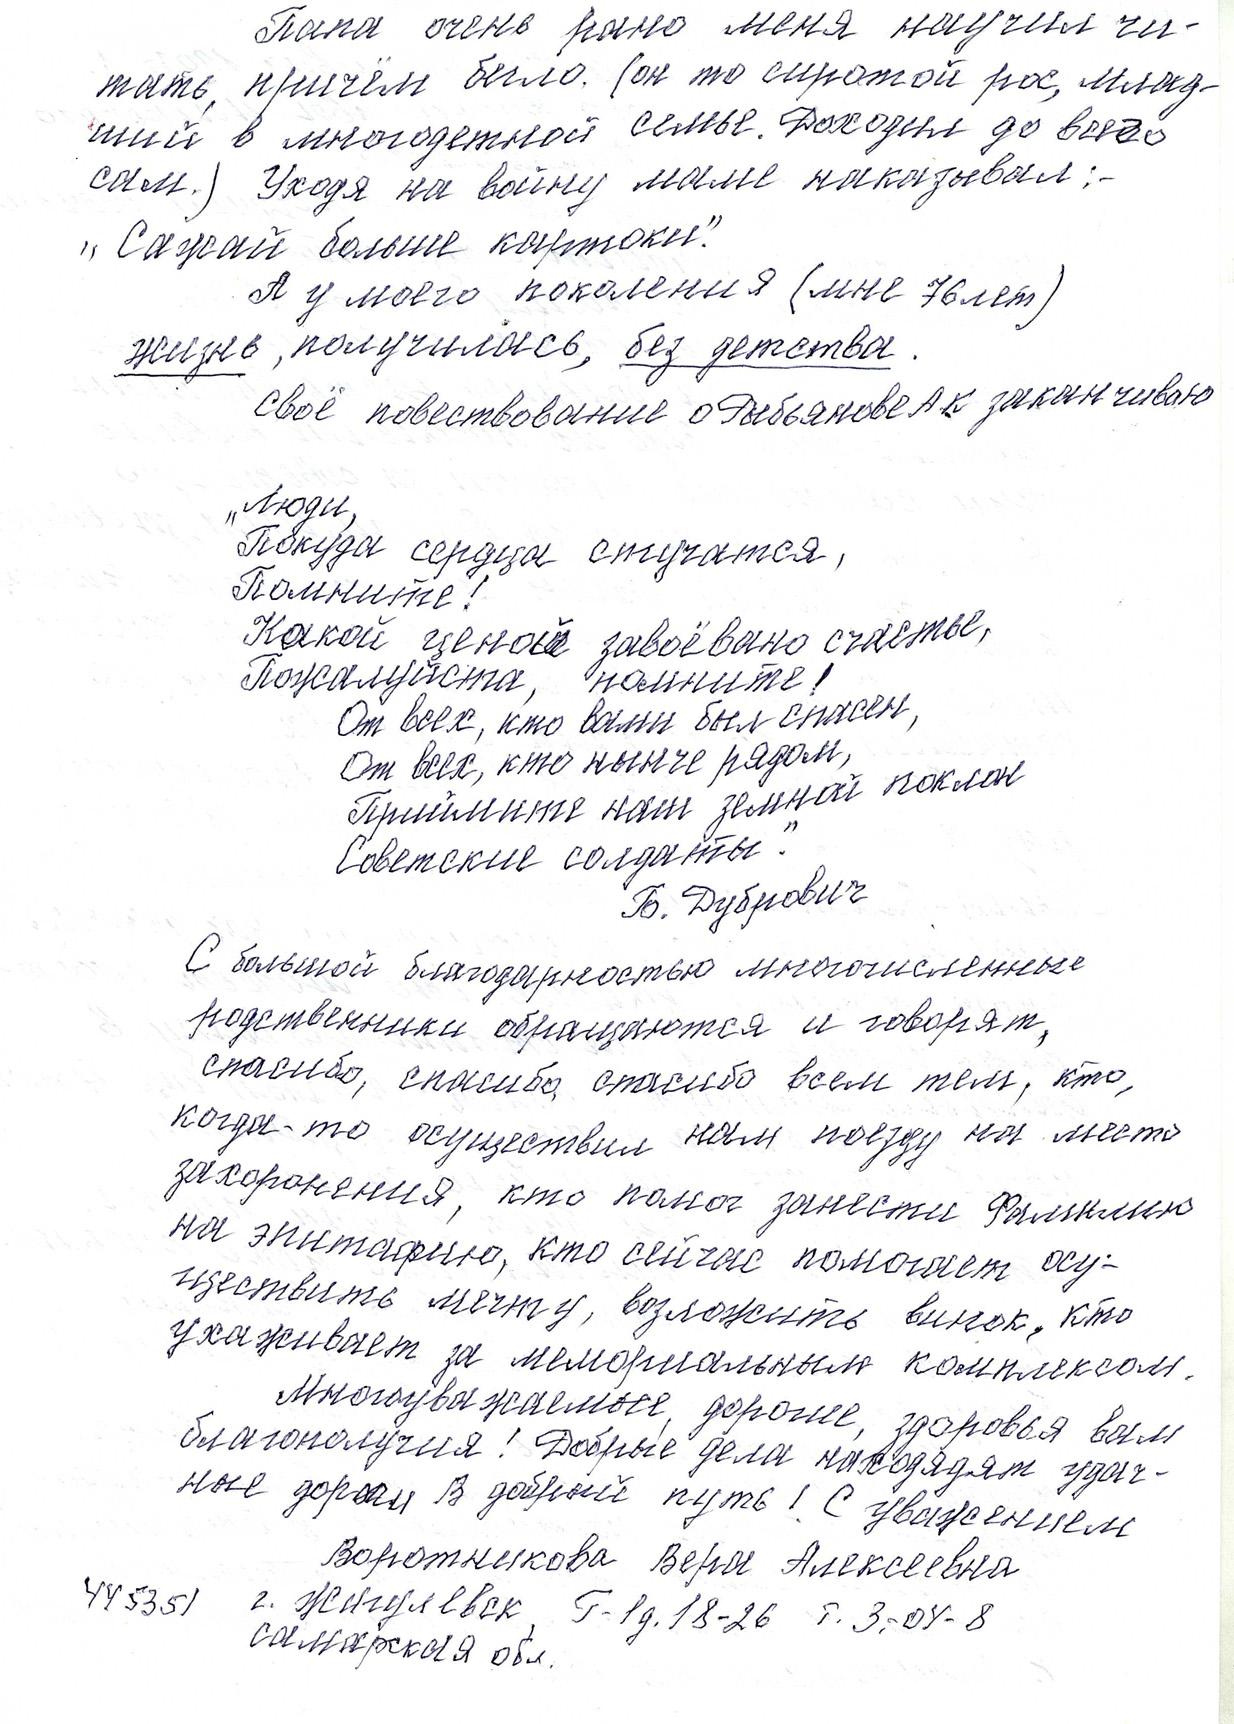 Папа очень рано меня научил чи-
тать, причём бегло. (он то сиротой рос, млад-
ший в многодетной семье. Доходил до всего
сам.) Уходя на войну маме наказывал:-
„Сажай больше картоки".
А у моего поколения (мне 76 лет)
жизнь, получилась, без детства.
Своё повествование о Рыбьянове А К заканчиваю
„Люди,
Покуда сердца стучатся,
Помните!
Какой ценой завоёвано счастье,
Пожалуйста, помните!
От всех, кто вами был спасен,
От всех, кто нынче рядом,
Приймите наш земной поклон
Советские солдаты".
Б. Дубрович
С большой благодарностью многочисленные
родственники обращаются и говорят,
спасибо, спасибо, спасибо всем тем, кто,
когда-то осуществил нам поезду на место
захоронения, кто помог занести Фамилию
на эпитафию, кто сейчас помогает осу-
ществить мечту, возложить винок, кто
ухаживает за мемориальным комплексом.
Многоуважаемые, дорогие, здоровья вам
благополучия! Добрые дела находядят удач-
ные дороги В добрый путь! С уважением
Воротникова Вера Алексеевна
445351 г. Жигулевск, Г-1 д. 18-26 т. 3-04-8
Самарская обл.